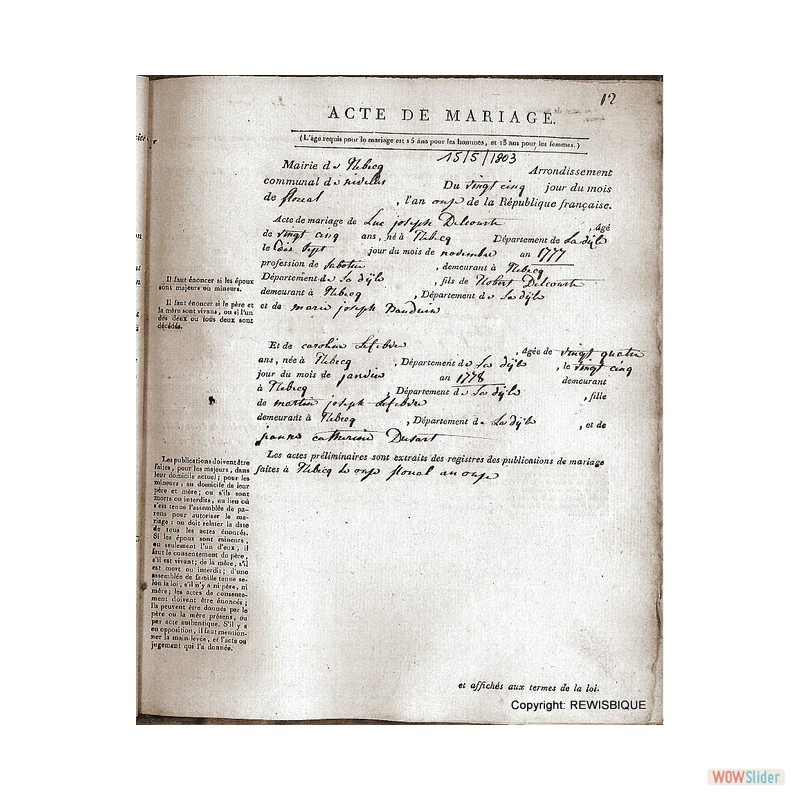 12
ACTE DE MARIAGE.
(L'âge requis pour le mariage est 15 ans pour les hommes, et 13 ans pour les femmes.)
15/5/1803
Mairie de Rebecq Arrondissement
communal de nivelles Du vingt cinq jour du mois
de floreal , l'an onze de la République française.
Acte de mariage de Luc joseph Delcourte , âgé
de vingt cinq ans, né à Rebecq Département de La dijle
le dix sept jour du mois de novembre an 1777
profession de sabotier , demeurant à Rebecq
Département de La dijle , fils de Robert Delcourte
demeurant à Rebecq , Département de La dijle
et de marie joseph
Et de caroline Lefebvre , âgée de vingt quatre
ans, née à Rebecq , Département de La dijle , le vingt cinq
jour du mois de janvier an 1778 demeurant
à Rebecq , Département de La dijle , fille
de martin joseph Lefebvre
demeurant à Rebecq , Département de La dijle , et de
jeanne catherine Dusart
Les actes préliminaires sont extraits des registres des publications de mariage
faites à Rebecq le onze floreal an onze
et affichés aux termes de la loi.
Il faut énoncer si les époux
sont majeurs ou mineurs.
Il faut énoncer si le père et
la mère sont vivans, ou si l'un
des deux ou tous deux sont
décédés.
Les publications doivent être
faites, pour les majeurs, dans
leur domicile actuel; pour les
mineurs, au domicile de leur
père et mère; ou s'ils sont
morts ou interdits, au lieu où
s'est tenue l'assemblée de pa-
rens pour autoriser le ma-
riage: on doit relater la date
de tous les actes énoncés.
Si les époux sont mineurs,
ou seulement l'un d'eux, il
faut le consentement du père,
s'il est vivant; de la mère, s'il
est mort ou interdit; d'une
assemblée de famille tenue se-
lon la loi, s'il n'y a ni père, ni
mère; les actes de consente-
ment doivent être énoncés;
Ils peuvent être donnés par le
père ou la mère présens, ou
par acte authentique. S'il y a
eu opposition, il faut mention-
ner la main-levée, et l'acte ou
jugement qui l'a donnée.
Copyright: REWISBIQUE
WOWSlider